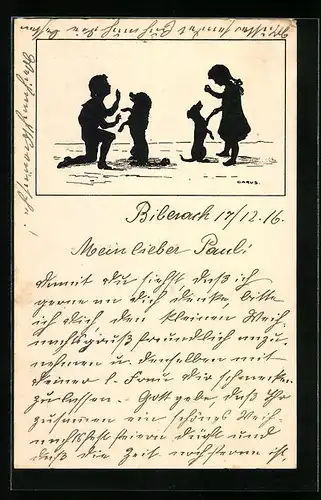 CARUS.
Biberach 17/12.16.
Mein lieber Paul!
Damit du siehst, daß ich
gerne an dich denke, bitte
ich dich, den kleinen Weih-
nachtsgruß freundlich anzu-
nehmen u. denselben mit
deiner l. Frau dir schmecken
zu lassen. Gott gebe, daß Ihr
zusammen ein schönes Weih-
nachtsfest feiern dürft und
daß die Zeit nicht ferne ist,